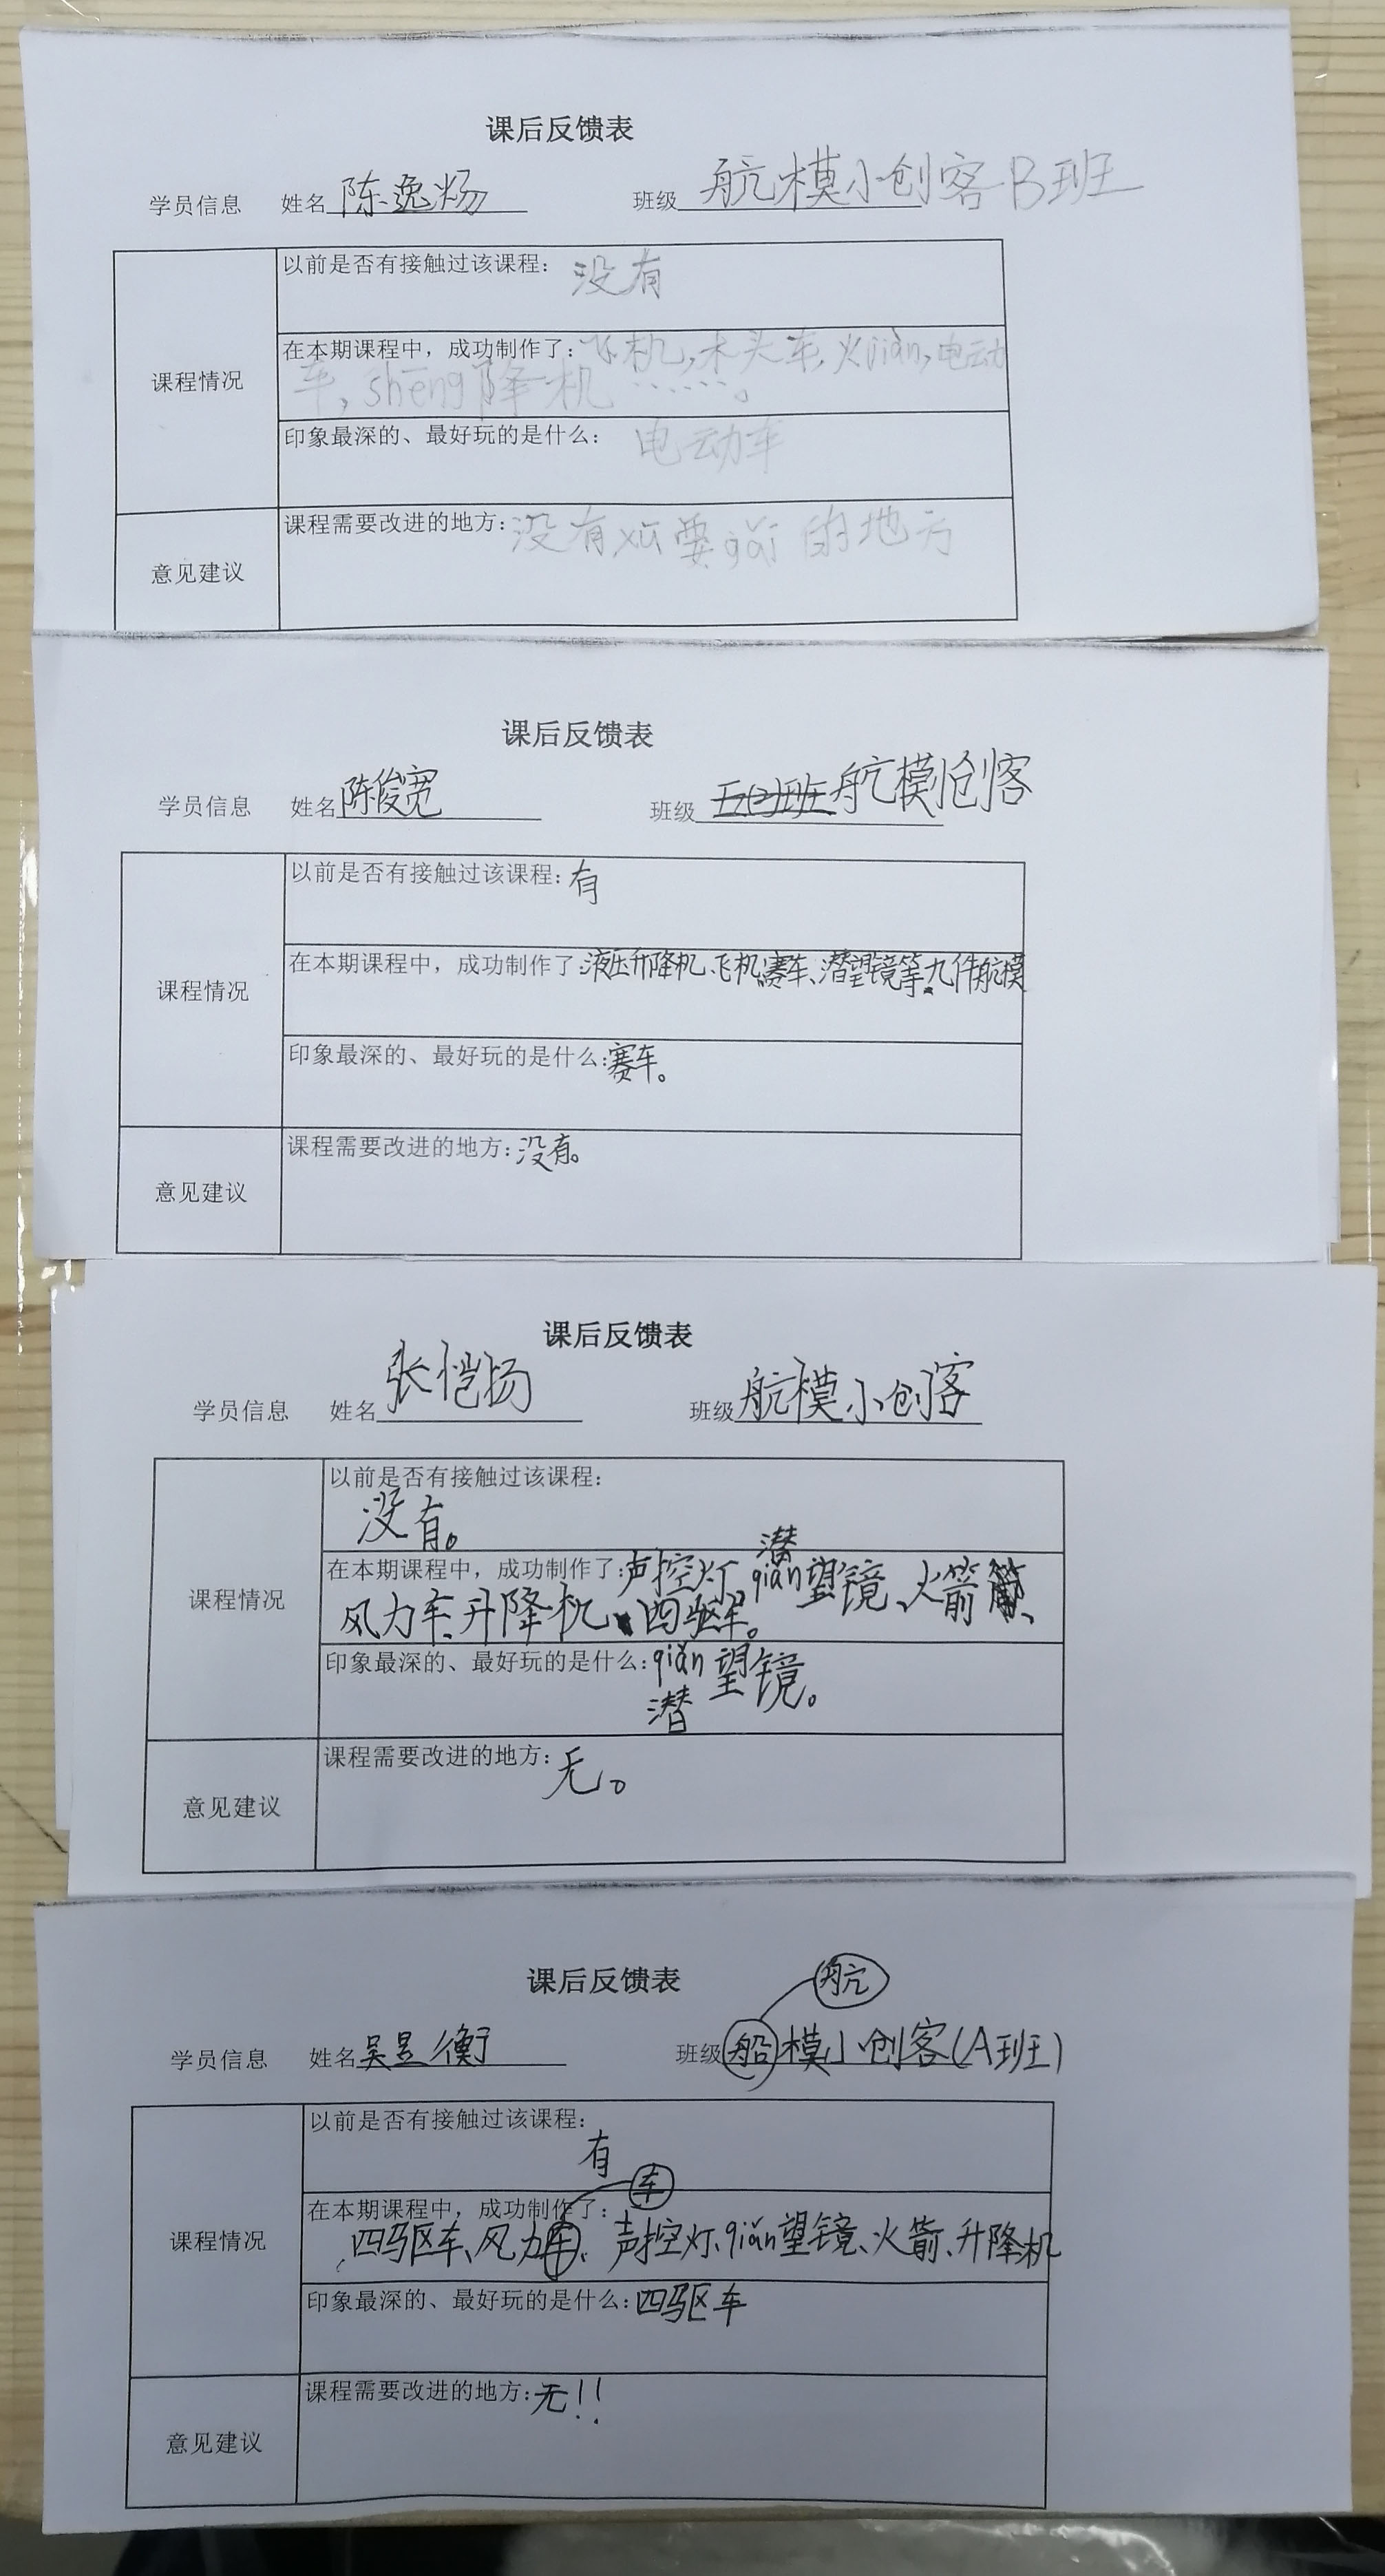 课后反馈表
学员信息 姓名 陈逸炀 班级 航模小创客B班
以前是否有接触过该课程： 没有
课程情况
在本期课程中，成功制作了：飞机，木头车，火jiàn，电动
车，shēng降机……。
印象最深的、最好玩的是什么： 电动车
意见建议
课程需要改进的地方：没有xū要gǎi的地方
课后反馈表
学员信息 姓名 陈俊宽 班级 航模创客
以前是否有接触过该课程：有
课程情况
在本期课程中，成功制作了：液压升降机、飞机、赛车、潜望镜等九件航模
印象最深的、最好玩的是什么：赛车。
意见建议
课程需要改进的地方：没有。
课后反馈表
学员信息 姓名 张恺扬 班级 航模小创客
以前是否有接触过该课程：
没有。
课程情况
潜
在本期课程中，成功制作了：声控灯、qián望镜、火箭、
风力车、升降机、四驱车。
印象最深的、最好玩的是什么：qián望镜。
潜
意见建议
课程需要改进的地方：无。
课后反馈表
航
学员信息 姓名 吴昱衡 班级 船模小创客（A班）
以前是否有接触过该课程：
有
车
课程情况
在本期课程中，成功制作了：
四驱车、风力车、声控灯、qián望镜、火箭、升降机
印象最深的、最好玩的是什么：四驱车
意见建议
课程需要改进的地方：无！！